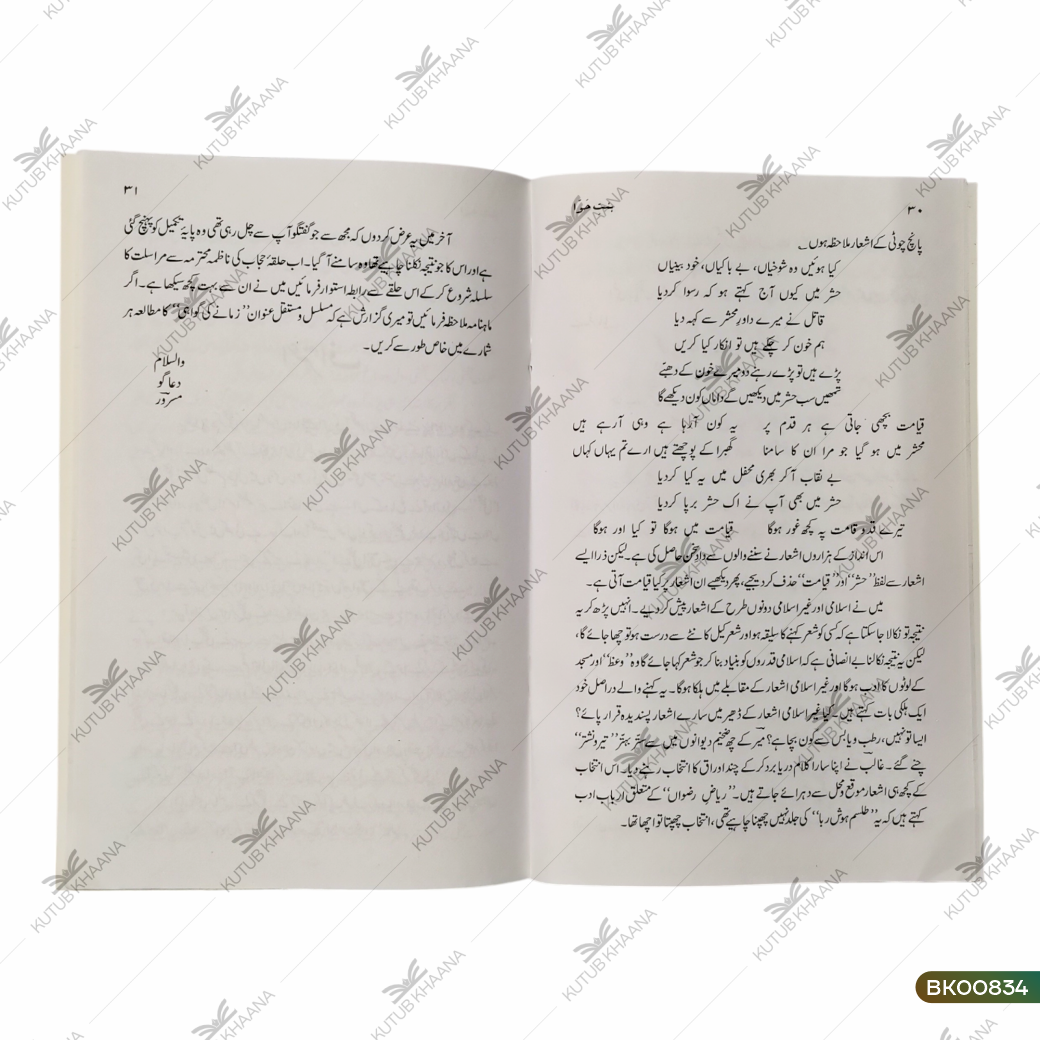 ۳۰
بنت حوا
پانچ چوٹی کے اشعار ملاحظہ ہوں۔
کیا ہوئیں وہ شوخیاں، بے باکیاں، خود بینیاں
حشر میں کیوں آج کہتے ہو کہ رسوا کردیا
قاتل نے میرے داورِ محشر سے کہہ دیا
ہم خون کر چکے ہیں تو انکار کیا کریں
پڑے ہیں تو پڑے رہنے دو میرے خون کے دھبے
تمھیں سب حشر میں دیکھیں گے داماں کون دیکھے گا
قیامت بچھی جاتی ہے ہر قدم پر یہ کون آرہا ہے وہی آرہے ہیں
محشر میں ہو گیا جو مرا ان کا سامنا گھبرا کے پوچھتے ہیں ارے تم یہاں کہاں
بے نقاب آکر بھری محفل میں یہ کیا کردیا
حشر میں بھی آپ نے اک حشر برپا کردیا
تیرے قد و قامت پہ کچھ غور ہوگا قیامت میں ہوگا تو کیا اور ہوگا
اس انداز کے ہزاروں اشعار نے سننے والوں سے دادِ سخن حاصل کی ہے۔ لیکن ذرا ایسے
اشعار سے لفظ ”حشر“ اور ”قیامت“ حذف کردیجیے، پھر دیکھیے ان اشعار پر کیا قیامت آتی ہے۔
میں نے اسلامی اور غیر اسلامی دونوں طرح کے اشعار پیش کردیے۔ انہیں پڑھ کر یہ
نتیجہ تو نکالا جاسکتا ہے کہ کسی کو شعر کہنے کا سلیقہ ہو اور شعر کیل کانٹے سے درست ہو تو چھا جائے گا،
لیکن یہ نتیجہ نکالنا بے انصافی ہے کہ اسلامی قدروں کو بنیاد بنا کر جو شعر کہا جائے گا وہ ”وعظ“ اور مسجد
کے لوٹوں کا ادب ہوگا اور غیر اسلامی اشعار کے مقابلے میں ہلکا ہوگا۔ یہ کہنے والے دراصل خود
ایک ہلکی بات کہتے ہیں۔ کیا غیر اسلامی اشعار کے ڈھیر میں سارے اشعار پسندیدہ قرار پائے؟
ایسا تو نہیں، رطب و یابس سے کون بچا ہے؟ میر کے چھ ضخیم دیوانوں میں سے ستر بہتر ”تیر و نشتر“
چنے گئے۔ غالب نے اپنا سارا کلام دریا برد کر کے چند اوراق کا انتخاب رہنے دیا۔ اس انتخاب
کے کچھ ہی اشعار موقع و محل سے دہرائے جاتے ہیں۔ ”ریاضِ رضواں“ کے متعلق اربابِ ادب
کہتے ہیں کہ یہ ”طلسم ہوش ربا“ کی جلد نہیں چھپنا چاہیے تھی، انتخاب چھپتا تو اچھا تھا۔
۳۱
آخر میں یہ عرض کردوں کہ مجھ سے جو گفتگو آپ سے چل رہی تھی وہ پایۂ تکمیل کو پہنچ گئی
ہے اور اس کا جو نتیجہ نکلنا چاہیے تھا وہ سامنے آ گیا۔ اب حلقۂ حجاب کی ناظمہ محترمہ سے مراسلت کا
سلسلہ شروع کر کے اس حلقے سے رابطہ استوار فرمائیں میں نے ان سے بہت کچھ سیکھا ہے۔ اگر
ماہنامہ ملاحظہ فرمائیں تو میری گزارش ہے کہ مسلسل و مستقل عنوان ”زمانے کی گواہی“ کا مطالعہ ہر
شمارے میں خاص طور سے کریں۔
والسلام
دعا گو
مسرور
KUTUB KHAANA
BK00834